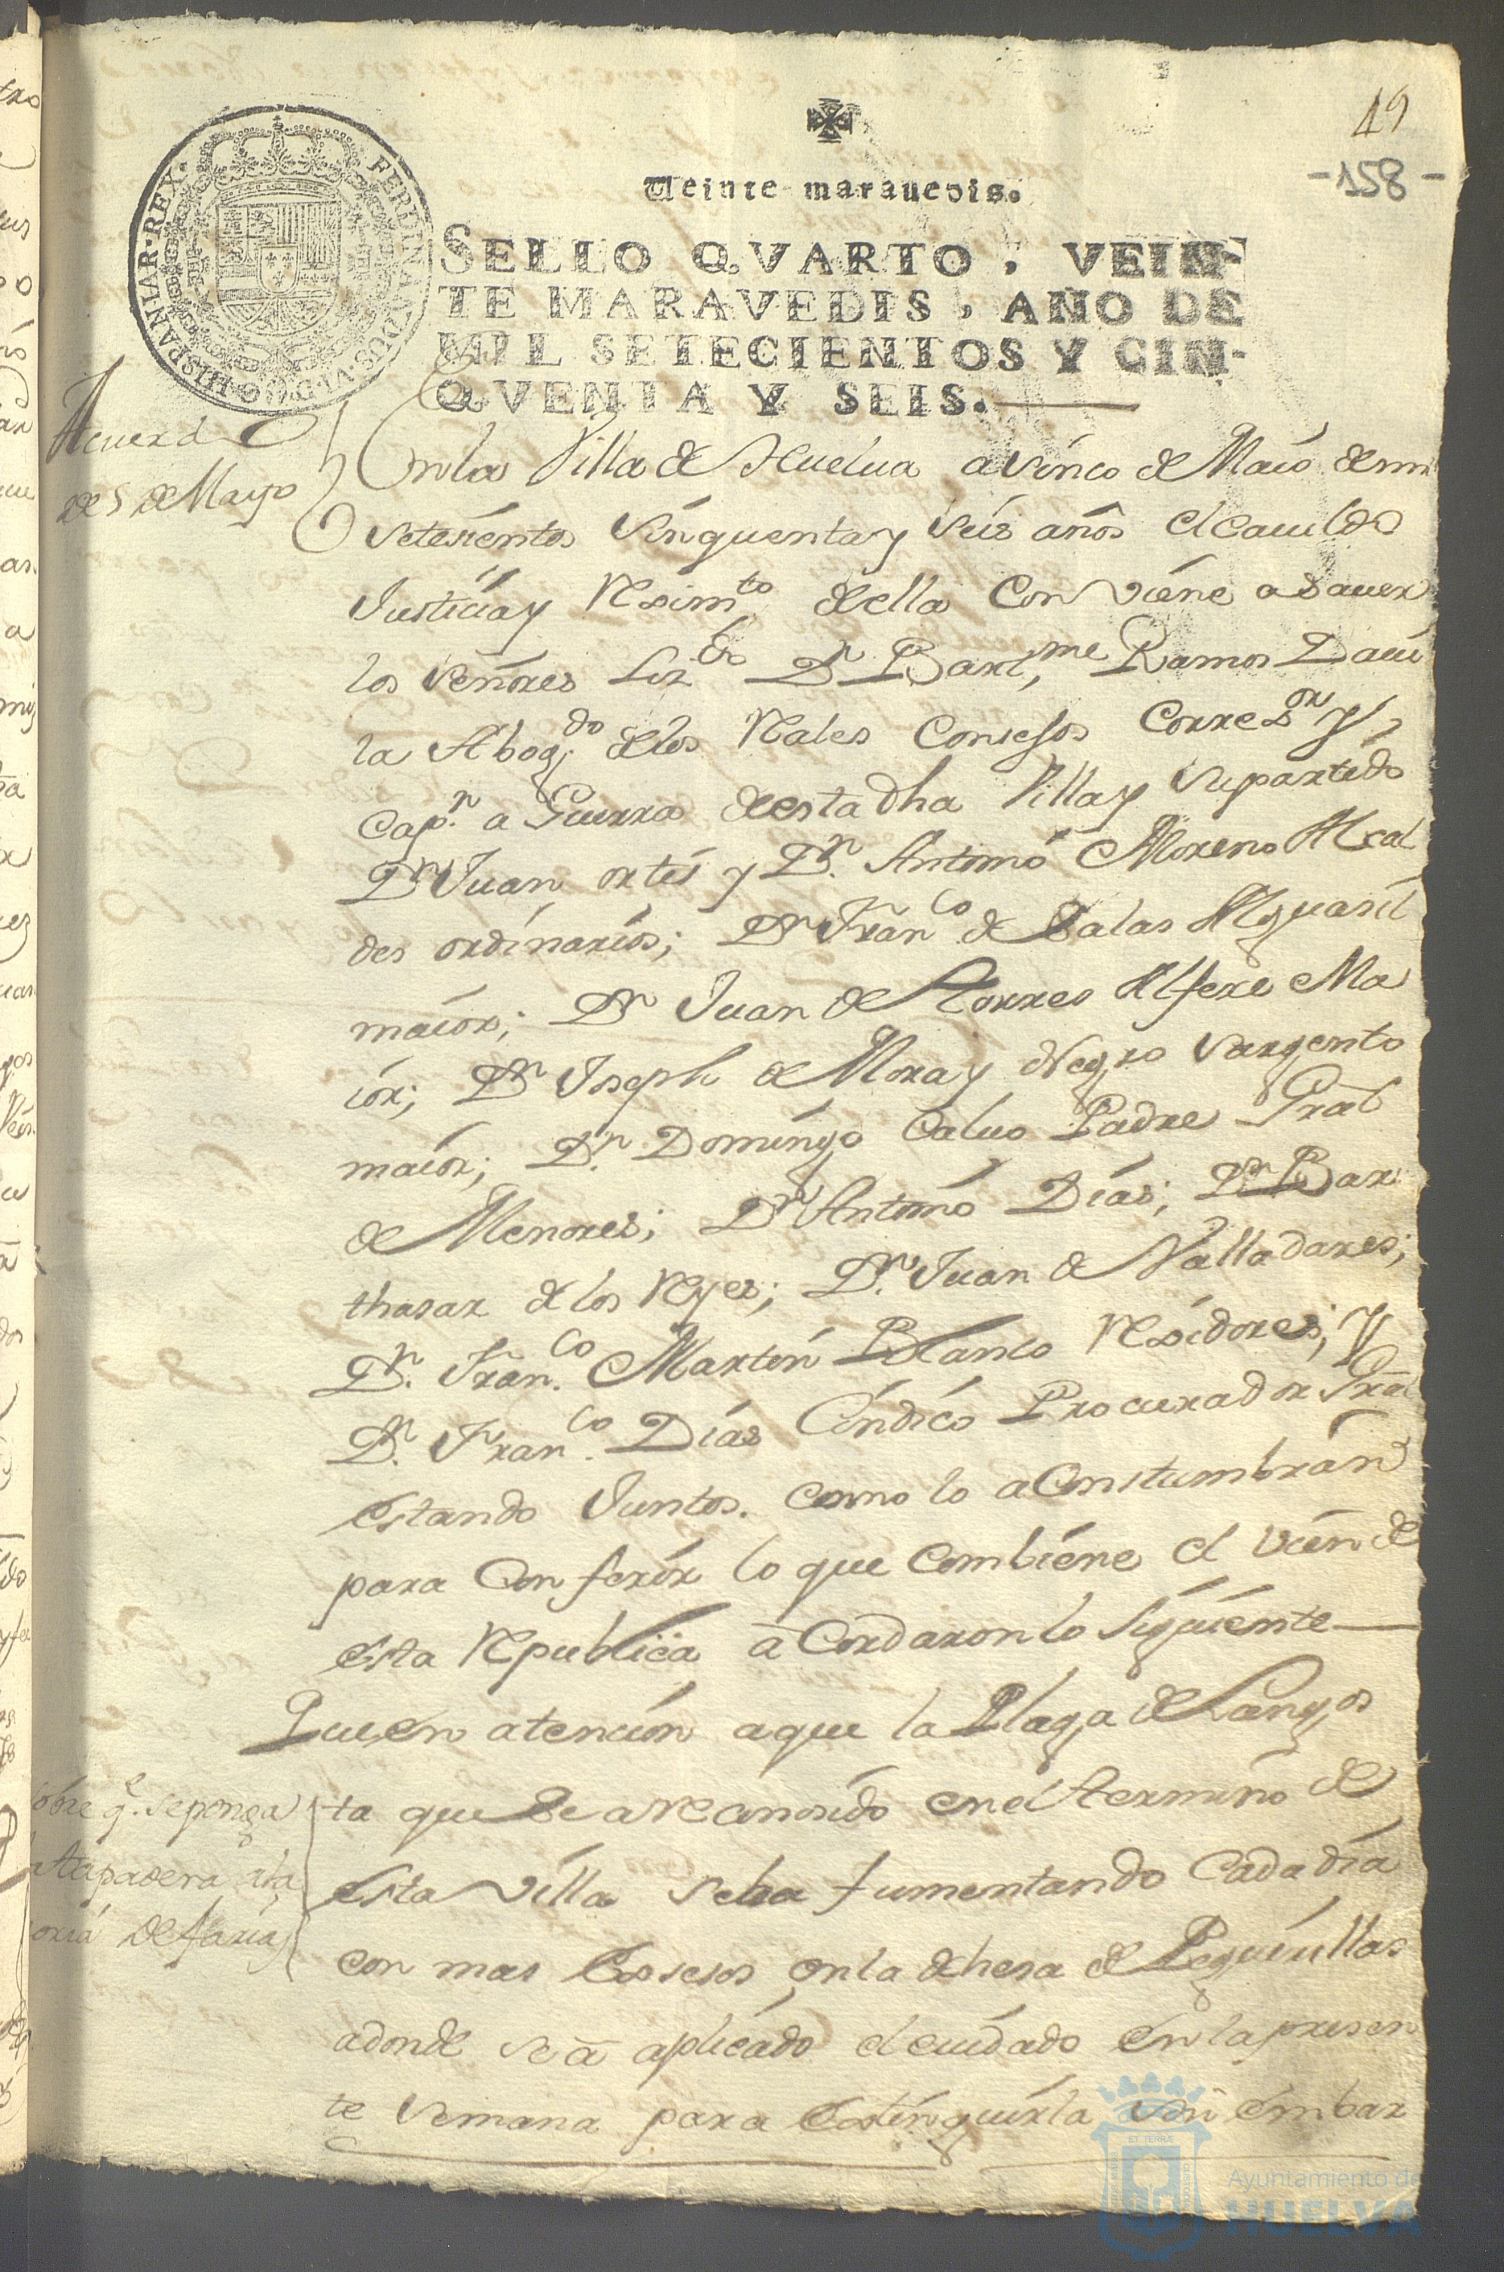 49
-158-
Veinte maravedis.
SELLO QVARTO, VEIN-
TE MARAVEDIS, AÑO DE
MIL SETECIENTOS Y CIN-
QVENTA Y SEIS.
FERDINANDUS·VI·D·G· HISPANIAR·REX·
Acuerdo
de 5 de Mayo
En la Villa de Huelua a Sinco de Maio de mil
Setesientos Sinquenta y Seis años el Cauildo
Justicia y Reximto della Conviene a Sauer
los Señores Lizdo Dn Bartme Ramos Daui
la Abogdo de los Rales Consejos Correxor Y
Capn a Guerra de esta dha Villa y Supartido
Dn Juan ortis y Dn. Antonio Moreno Alcal
des ordinarios; Dn Franco de Salas Alguasil
maior; Dn Juan de Torres Alferes Ma
ior; Dn Joseph de Mora y Negro Sargento
maior; Dn. Domingo Caluo Padre Gral
de Menores; Dn Antonio Dias; Dn Bar
thasar de los Reyes; Dn. Juan de Valladares;
Dn. Franco. Martin Blanco Rexidores; Y
Dn. Franco. Dias Cindico Procurador Gral
estando Juntos. como lo aConstumbran
para Conferir lo que Combiene el vien de
esta Republica aCordaron lo Siguiente
Que en atencion a que la Plaga de Langos
ta que Se a reconosido en el termino de
esta Villa Seha fumentando Cada dia
con mas Exsesos en la dehesa de Peguerillas
adonde Se a aplicado el cuidado en la presen
te Semana para Extinguirla Sin embar
Sobre q. Se ponga
la tapadera ala
noria de farias
Ayuntamiento de
HUELVA